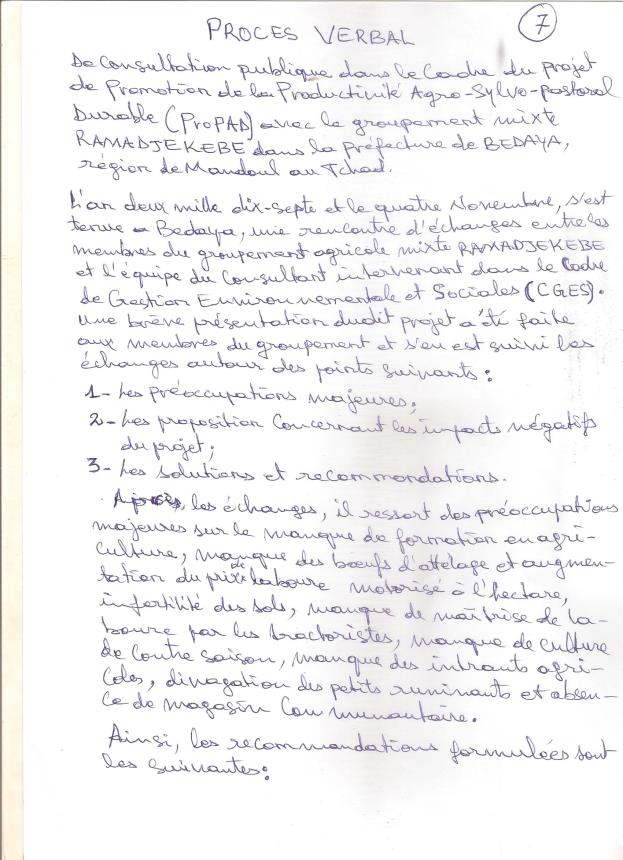 PROCES VERBAL
7
De Consultation publique dans le Cadre du projet
de Promotion de la Productivité Agro-Sylvo-pastoral
Durable (ProPAD) avec le groupement mixte
RAMADJEKEBE dans la préfecture de BEDAYA,
région de Mandoul au Tchad.
L'an deux mille dix-septe et le quatre Novembre, s'est
tenue a Bedaya, une rencontre d'échanges entre les
membres du groupement agricole mixte RAMADJEKEBE
et l'équipe du Consultant intervenant dans le Cadre
de Gestion Environnementale et Sociales (CGES).
Une brève présentation dudit projet a été faite
aux membres du groupement et s'en est suivi les
échanges autour des points suivants :
1- Les préoccupations majeures;
2- Les proposition Concernant les impacts négatifs
du projet;
3- Les solutions et recommondations.
Après, les échanges, il ressort des préoccupations
majeures sur le manque de formation en agri-
culture, manque des bœufs d'attelage et augmen-
tation du prix de laboure motorisé à l'hectare,
infertilité des sols, manque de maîtrise de la-
boure par les tractoristes, manque de culture
de Contre saison, manque des intrants agri-
coles, divagation des petits ruminants et absen-
ce de magasin Communautaire.
Ainsi, les recommandations formulées sont
les suivantes :